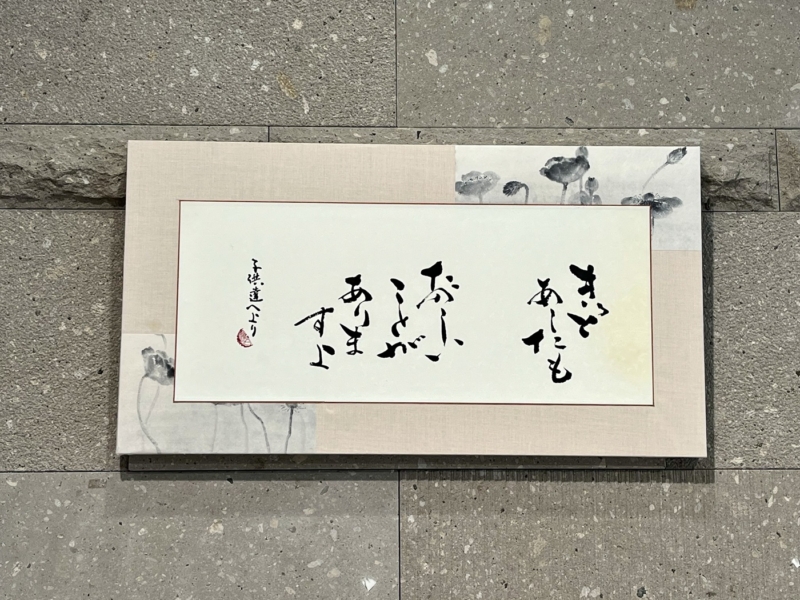 きっと
あしたにも
ことが
ありま
すよ
子供達へより